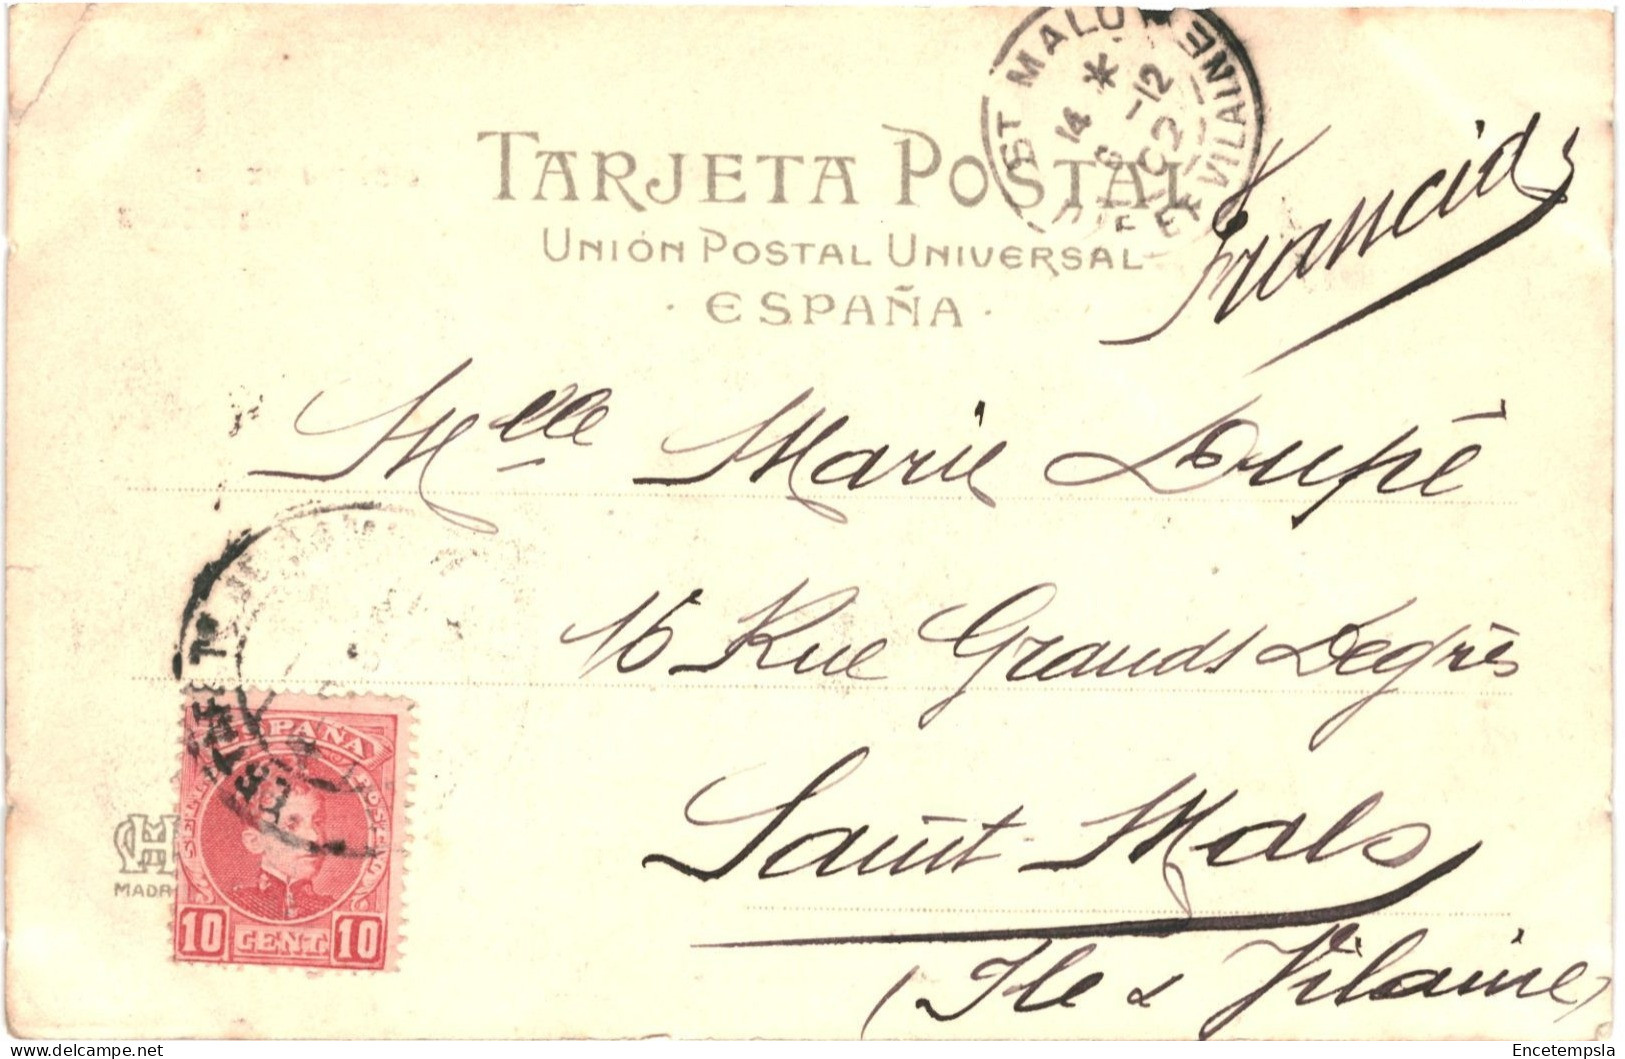 TARJETA POSTAL
UNIÓN POSTAL UNIVERSAL
· ESPAÑA ·
ST MALO
VILAINE
14 *
6 -12
02
Francia
Mlle Marie Dupé
16 Rue Grands Degrés
Saint-Malo
(Ile & Vilaine)
ESPAÑA
10 CENT. 10
MADR
delcampe.net
Encetempsla